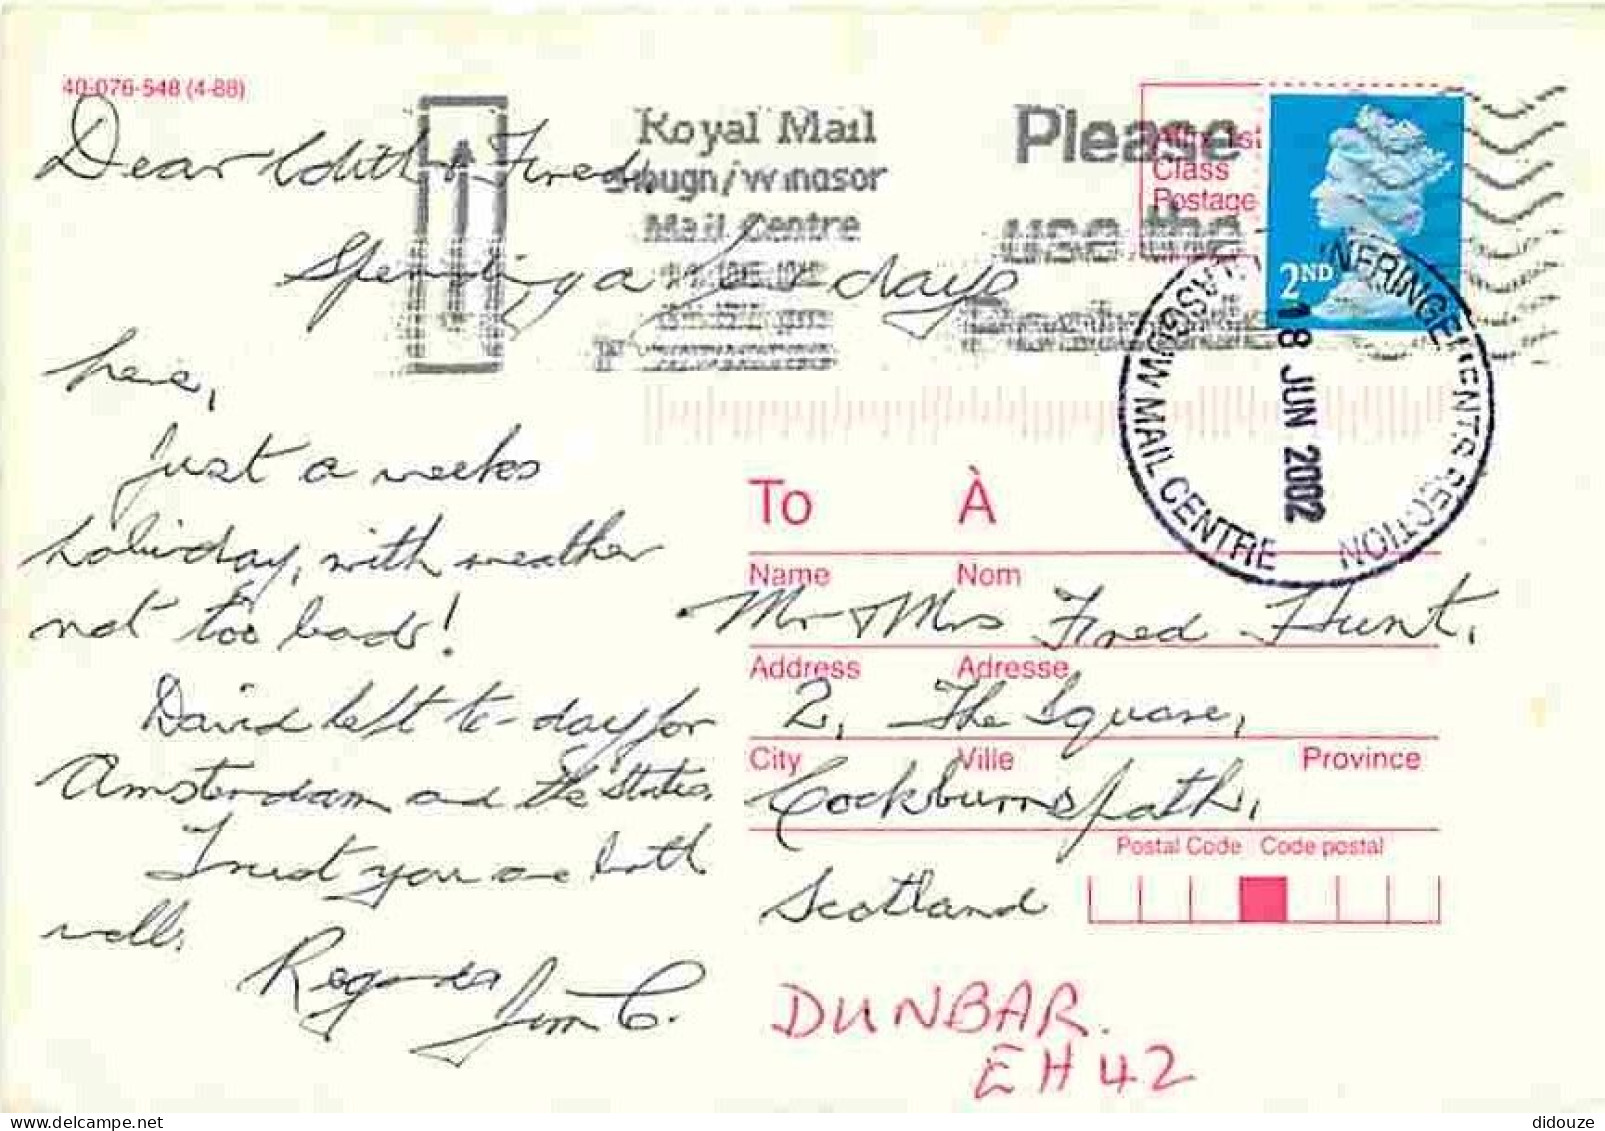 40-076-548 (4-88)
Royal Mail
Slough/Windsor
Mail Centre
Please
use the
Class
Postage
2ND
GLASGOW MAIL CENTRE
SECTION
18 JUN 2002
Dear Edith & Fred,
Spending a few days
here,
Just a weeks
holiday, with weather
not too bad!
David left to-day for
Amsterdam and the States.
Trust you are both
well.
Regards
Jim C.
To À
Name Nom
Mr & Mrs Fred Hunt,
Address Adresse
2, The Square,
City Ville Province
Cockburnspath,
Postal Code Code postal
Scotland
DUNBAR.
EH42
didouze